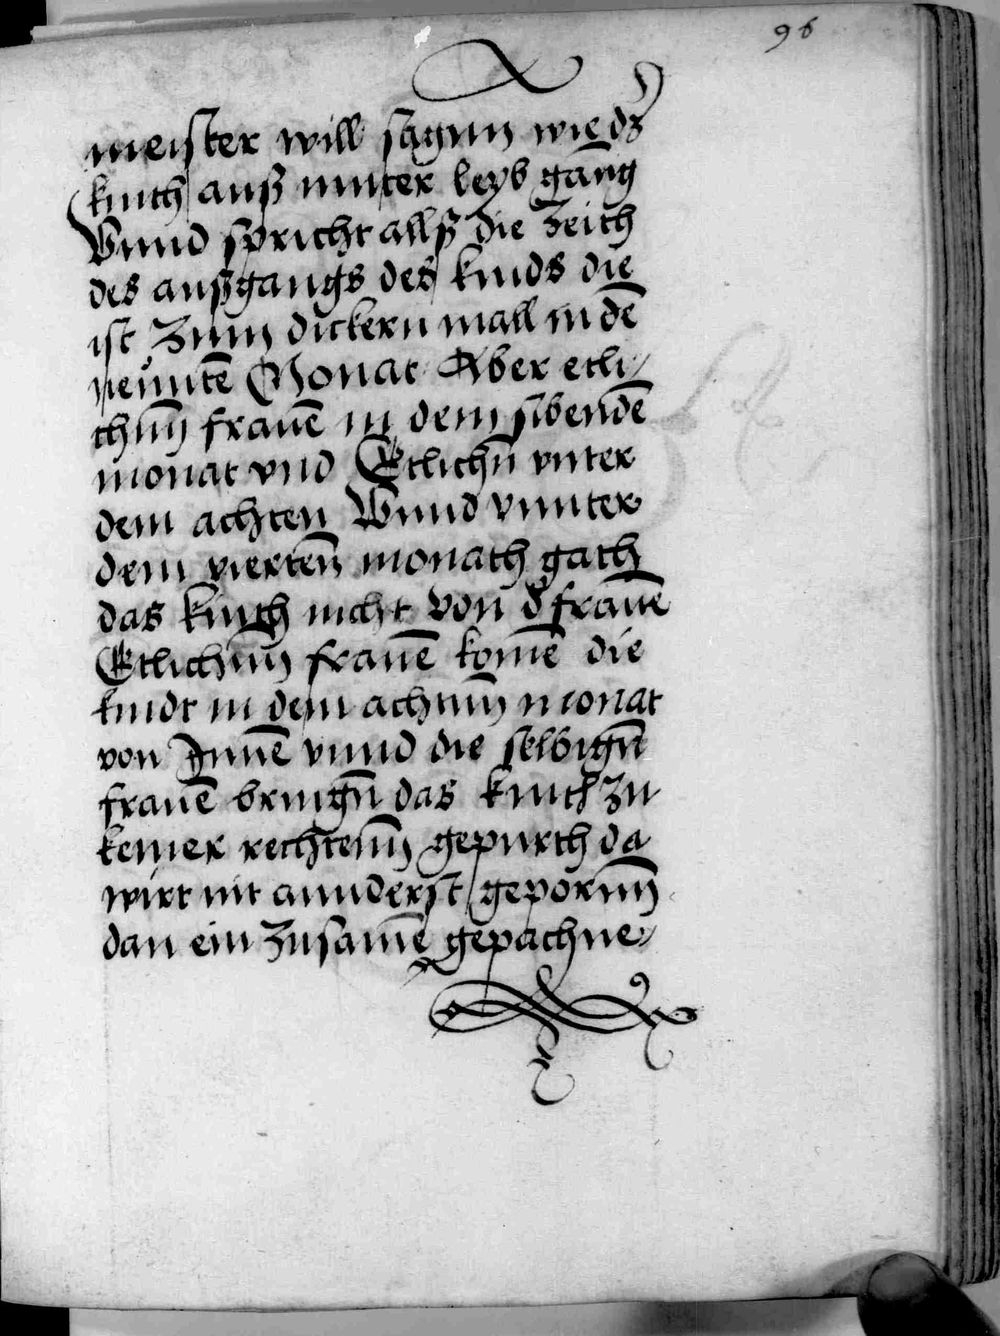 96
meister will sagnn wie dz
kinth auß muter leyb gāng
Vnnd spricht allß die Zeith
des außgangs des kinds die
ist Zum dickern mall in dē
neuntē Monat Aber etli-
chnn frauē in dem sibendē
monat vnd Etlichn̄ vnter
dem achten Vnnd vnnter
dem vierten̄ monath gath
das kinth nicht von d̄ frauē
Etlichnn frauē komē die
kindt in dem achtnn monat
von Innē vnnd die selbign̄
frauē bringn̄ das kinth zu
keiner rechtenn gepurth da
wirt nit annderst gepornn
dan ein Zusamē gepachne-